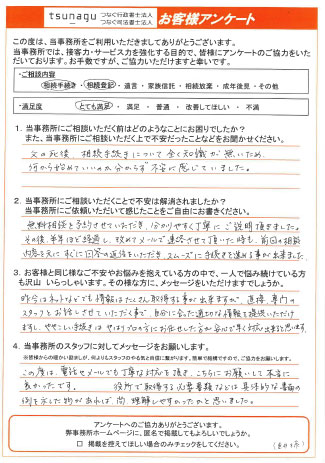 tsunagu つなぐ行政書士法人
つなぐ司法書士法人
お客様アンケート
この度は、当事務所をご利用いただきましてありがとうございます。
当事務所では、接客力・サービス力を強化する目的で、皆様にアンケートのご協力をいた
だいております。お手数ですが、ご協力いただけますと幸いです。
・ご相談内容
相続手続き・相続登記・遺言・家族信託・相続放棄・成年後見・その他
・満足度
とても満足・満足・普通・改善してほしい・不満
1. 当事務所にご相談いただく前はどのようなことにお困りでしたか?
また、当事務所にご相談いただく上で不安だったことなどをお聞かせください。
父の死後、相続手続きについて全く知識が無いため、
何から始めていいのか分からず不安に感じていました。
2. 当事務所にご相談いただくことで不安は解消されましたか?
当事務所にご依頼いただいて感じたことをご自由にお書きください。
無料相談を予約させていただき、分かりやすく丁寧にご説明頂きました。
その後、半年ほど経過し、改めてメールで連絡させて頂いた時も、前回の相談
内容を元にすぐに回答の返信をいただき、スムーズに手続きを進める事が出来ました。
3. お客様と同じ様なご不安やお悩みを抱えている方の中で、一人で悩み続けている方
も沢山いらっしゃいます。その様な方に、メッセージをいただけますでしょうか。
昨今はネットなどでも情報はたくさん取得する事が出来ますが、直接、専門の
スタッフとお話しさせていただく事で、自分に合った適切な情報を提供いただけ
ますし、ややこしい手続きはやはりプロの方にお任せした方が安心で早く対応出来ると思います。
4. 当事務所のスタッフに対してメッセージをお願いします。
※皆様からの暖かい励ましが、何よりもスタッフのやる気と自信に繋がります。簡単で結構ですので、ご協力をお願いします。
この度は、電話もメールでも丁寧な対応を頂き、こちらにお願いして本当に
良かったです。 役所で取得する必要書類などは具体的な書面の
例を示した物があれば、尚、理解しやすかったかと思いました。
アンケートへのご協力ありがとうございます。
弊事務所ホームページに、匿名で掲載してもよろしいでしょうか。
□ 掲載を控えてほしい場合のみチェックをしてください。